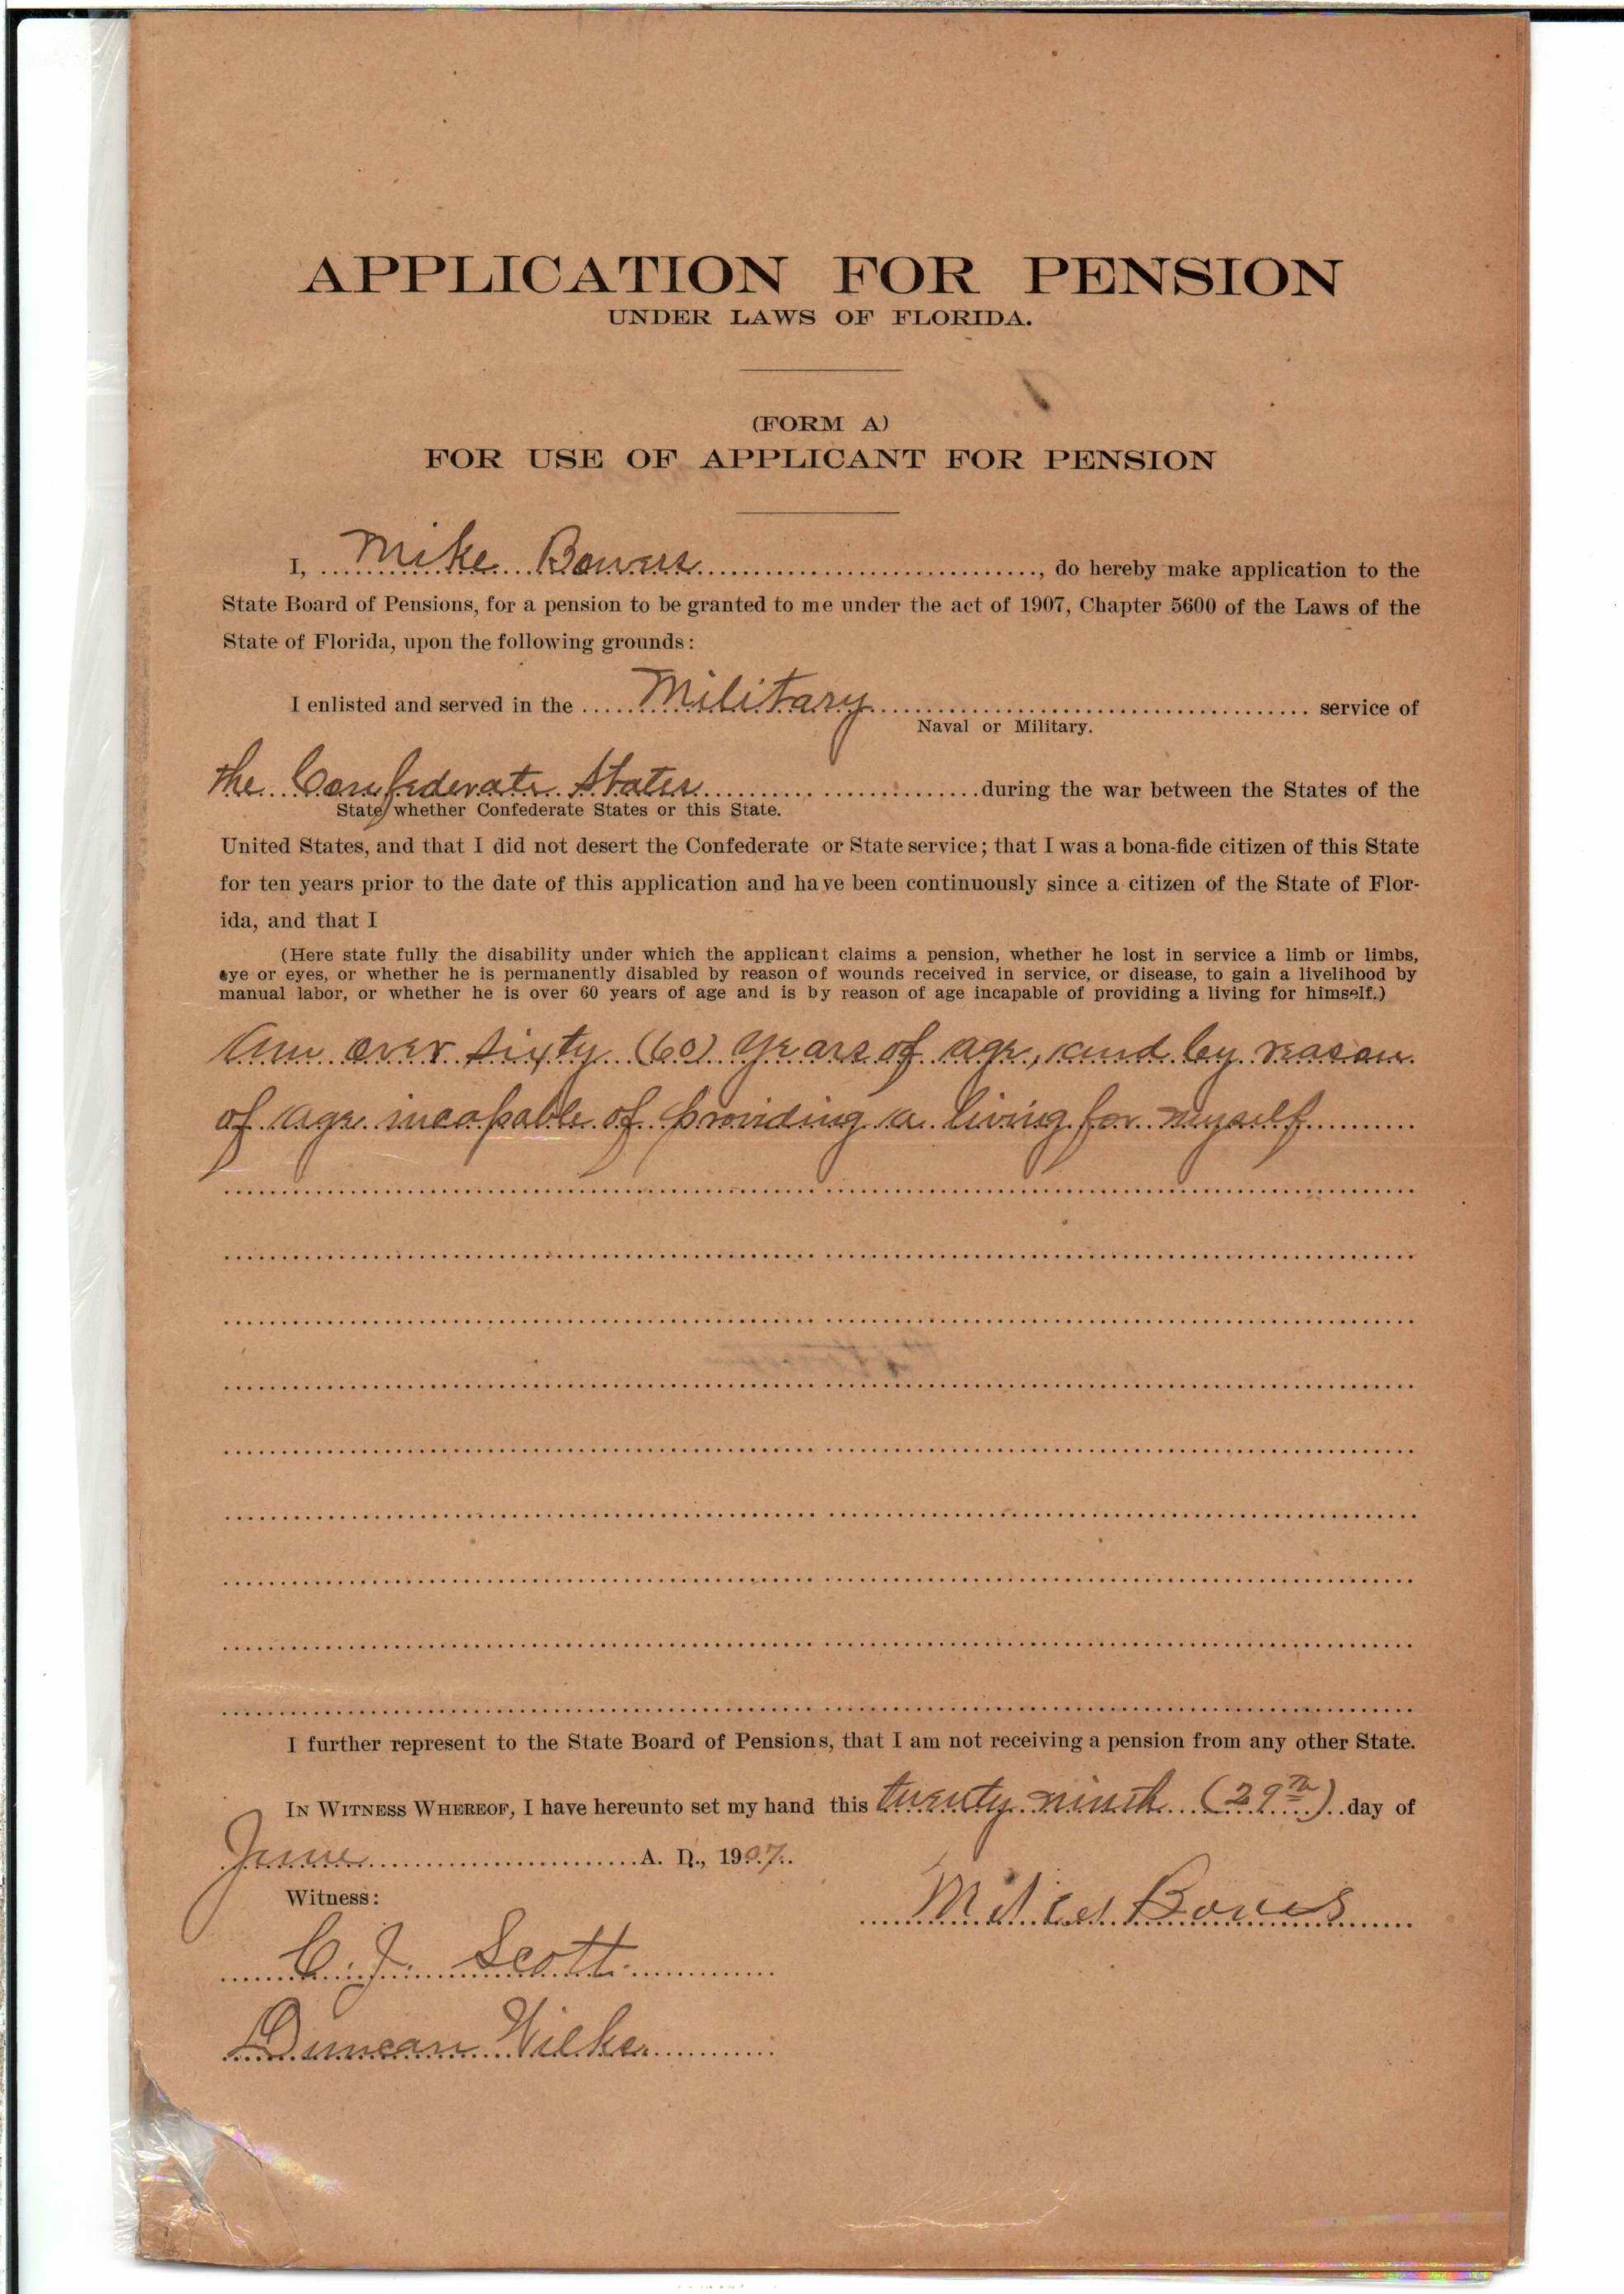 APPLICATION FOR PENSION
UNDER LAWS OF FLORIDA.
(FORM A)
FOR USE OF APPLICANT FOR PENSION
I, Mike Bowers, do hereby make application to the
State Board of Pensions, for a pension to be granted to me under the act of 1907, Chapter 5600 of the Laws of the
State of Florida, upon the following grounds:
I enlisted and served in the Military service of
Naval or Military.
the Confederate States during the war between the States of the
State whether Confederate States or this State.
United States, and that I did not desert the Confederate or State service; that I was a bona-fide citizen of this State
for ten years prior to the date of this application and have been continuously since a citizen of the State of Flor-
ida, and that I
(Here state fully the disability under which the applicant claims a pension, whether he lost in service a limb or limbs,
eye or eyes, or whether he is permanently disabled by reason of wounds received in service, or disease, to gain a livelihood by
manual labor, or whether he is over 60 years of age and is by reason of age incapable of providing a living for himself.)
Am over sixty (60) years of age, and by reason
of age incapable of providing a living for myself
I further represent to the State Board of Pensions, that I am not receiving a pension from any other State.
IN WITNESS WHEREOF, I have hereunto set my hand this twenty ninth (29th) day of
June A. D., 1907.
Witness:
C. J. Scott
Duncan